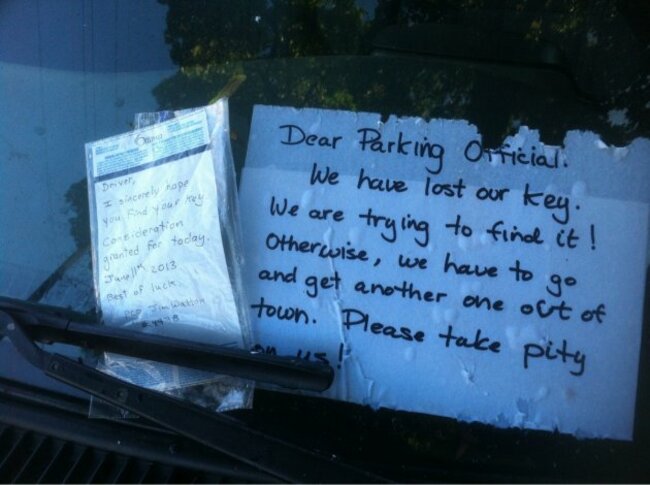 Driver,
I sincerely hope
you find your key
Consideration
granted for today.
June 11th 2013
Best of luck.
Dear Parking Official.
We have lost our key.
We are trying to find it!
Otherwise, we have to go
and get another one out of
town. Please take pity
on us!